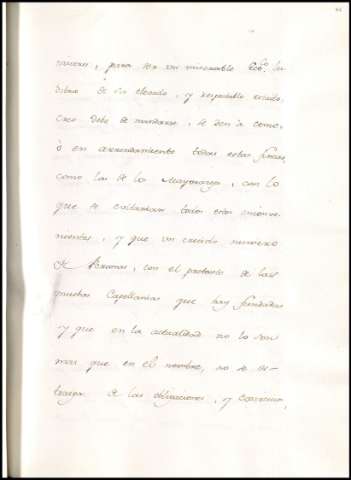 para ser un miserable
de un elevado, y respetable estado.
Creo debe de mandarse, se den à censo,
ò en arrendamiento todas estas fincas,
como las de los Mayorazgos, con lo
que se evitarían todos estos inconve-
nientes, y que un crecido numero
de Personas, con el pretexto de las
muchas Capellanias que hay fundadas
y que en la actualidad no lo son
mas que en el nombre, no se dis-
traigan de las obligaciones, y